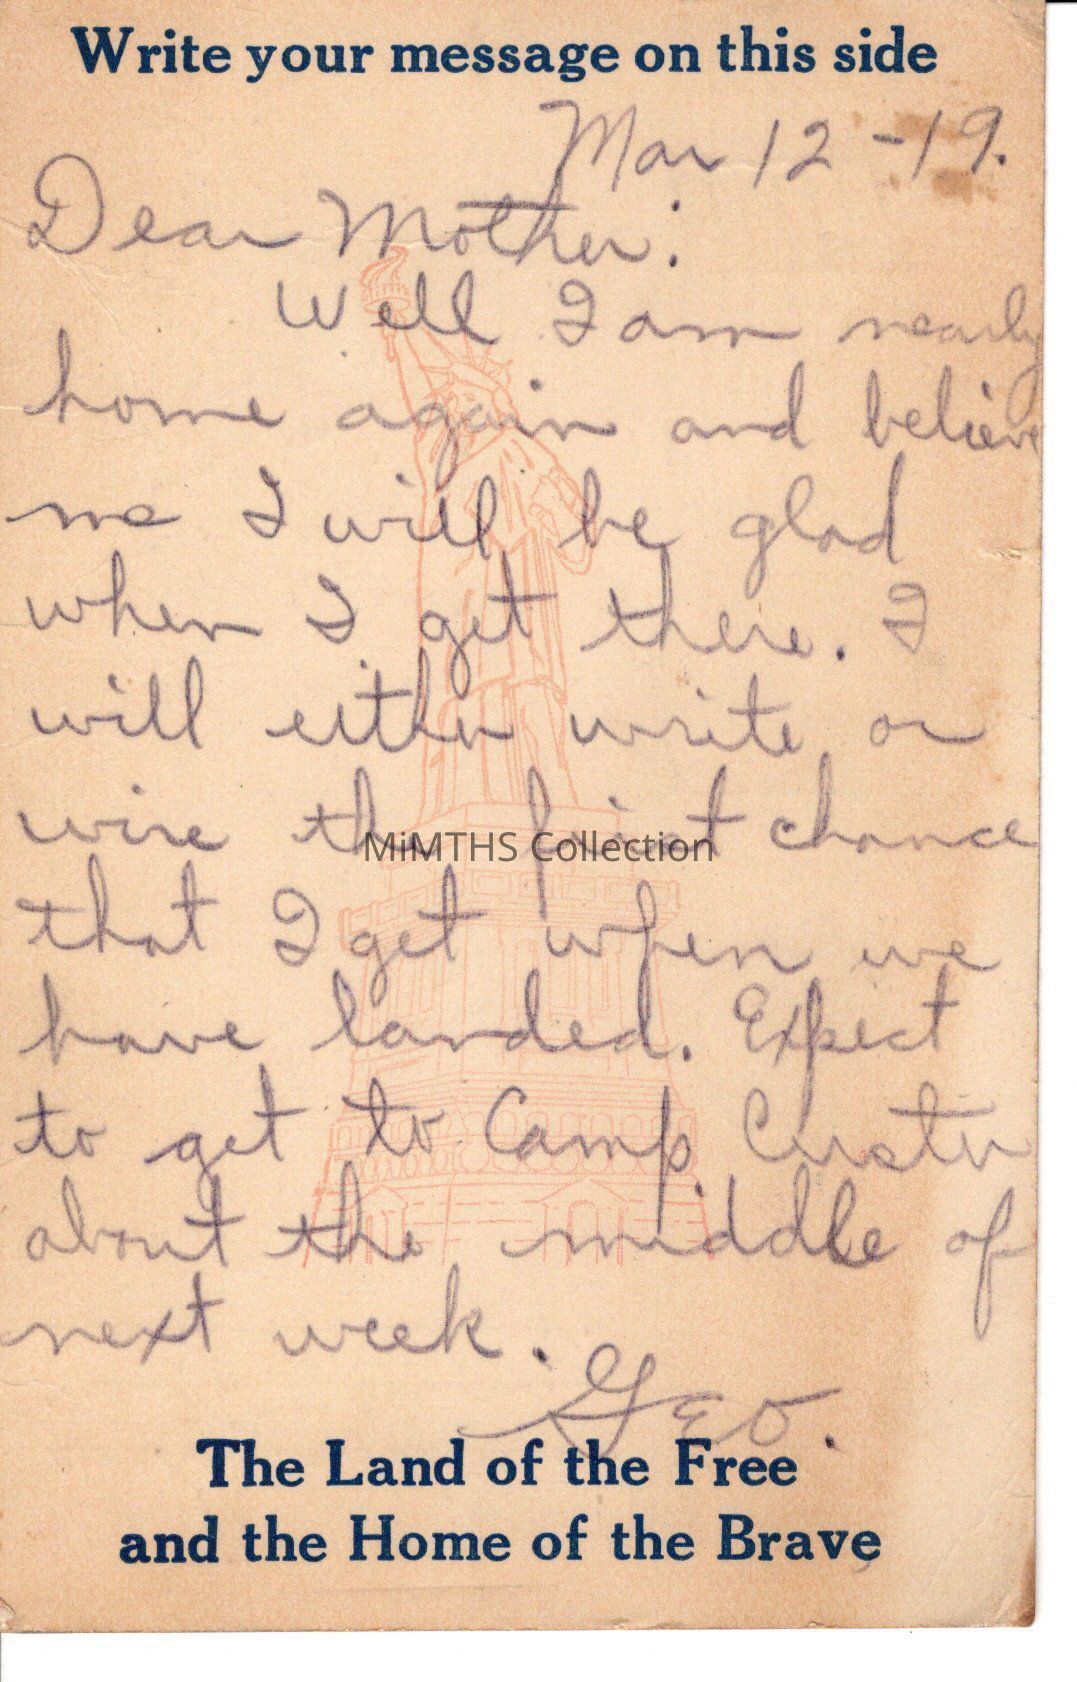 Write your message on this side
Mar 12 - 19.
Dear Mother:
Well I am nearly
home again and believe
me I will be glad
when I get there. I
will either write or
wire the first chance
MiMTHS Collection
that I get when we
have landed. Expect
to get to Camp Custer
about the middle of
next week.
Geo.
The Land of the Free
and the Home of the Brave